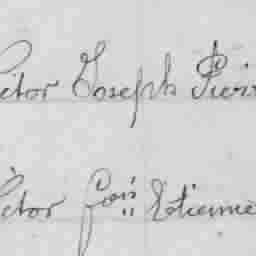 ictor Joseph Pierr
Victor fçois Etienne